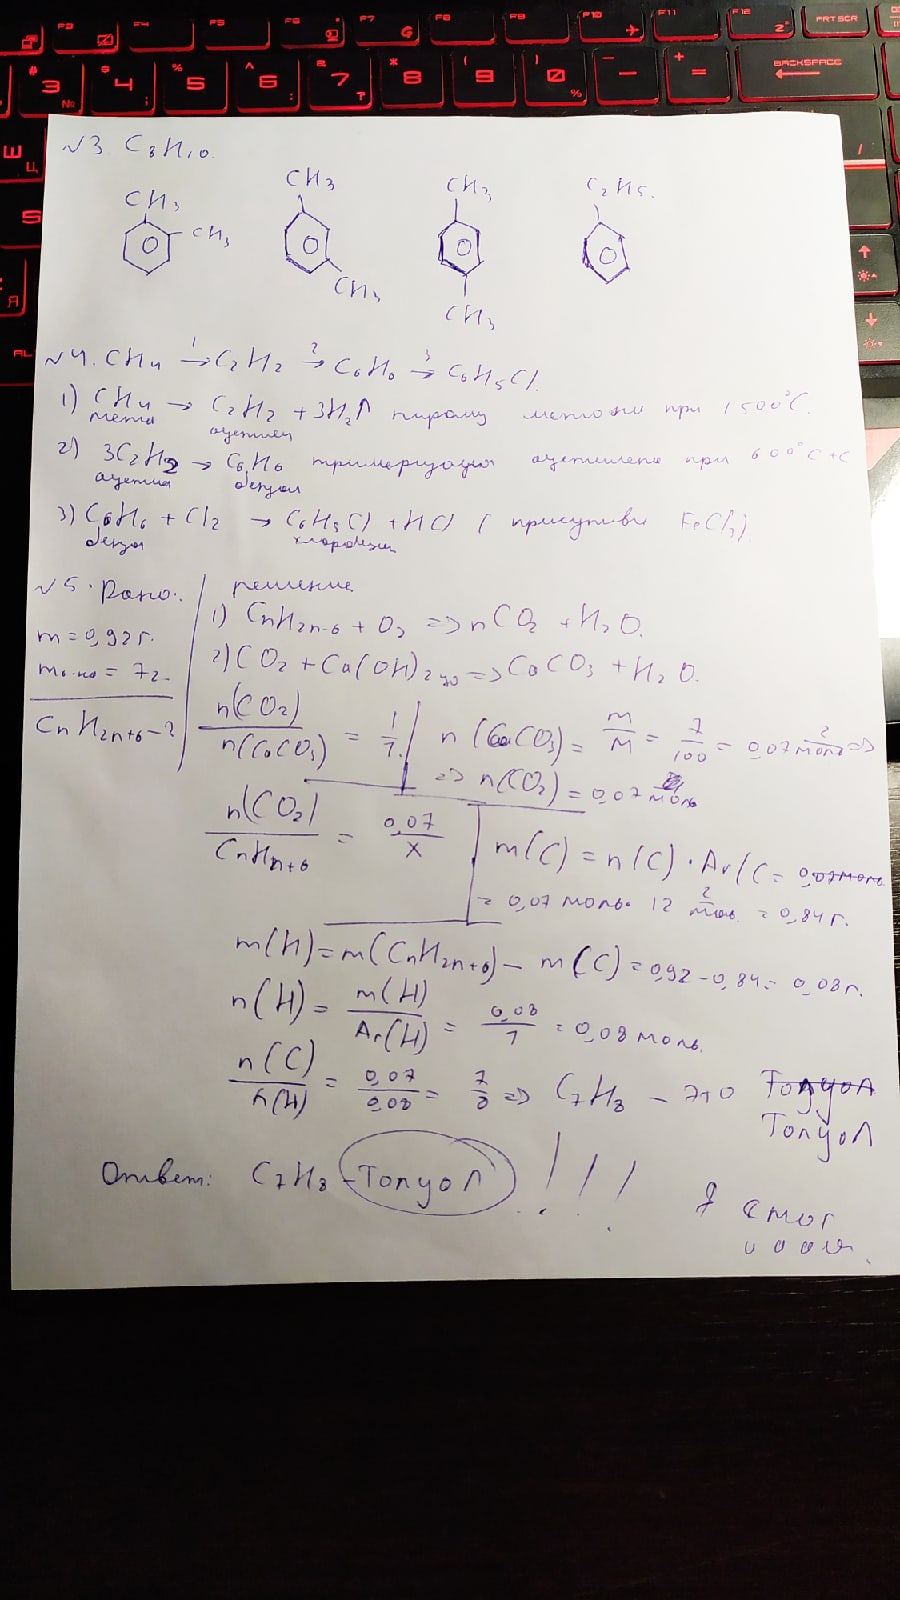 F3 F4 F5 F6 F7 F8 F9 F10 F11 F12 PRT SCR
# 3 № $ 4 ; % 5 ^ 6 : & 7 * 8 ( 9 ) 0 % — + = BACKSPACE
Ш
Ц
S
Я
AL
√3. C8H10.
CH3 CH3 CH3 C2H5.
CH3 CH3 CH3
√4. CH4 1→ C2H2 2→ C6H6 3→ C6H5Cl.
1) CH4 → C2H2 + 3H2↑ пиролиз метана при 1500°C.
метан ацетилен
2) 3C2H2 → C6H6 тримеризация ацетилена при 600°C + C
ацетилен бензол
3) C6H6 + Cl2 → C6H5Cl + HCl ( присутствие FeCl3).
бензол хлорбензол
√5. Дано:
m = 0,92г.
= 7г.
CnH2n+6 - ?
решение
1) CnH2n-6 + O2 => nCO2 + H2O.
2) CO2 + Ca(OH)2 => CaCO3 + H2O.
n(CO2) / n(CaCO3) = 1/1. n(CaCO3) = m/M = 7/100 = 0,07 моль =>
=> n(CO2) = 0,07 моль
n(CO2) / CnHn+6 = 0,07 / x
m(C) = n(C) · Ar(C = 0,07моль
= 0,07 моль · 12 г/моль = 0,84г.
m(H) = m(CnH2n+6) - m(C) = 0,92 - 0,84 = 0,08г.
n(H) = m(H) / Ar(H) = 0,08 / 1 = 0,08 моль.
n(C) / n(H) = 0,07 / 0,08 = 7/8 => C7H8 - это Толуол
Толуол
Ответ: C7H8 - Толуол !!!
Я смог